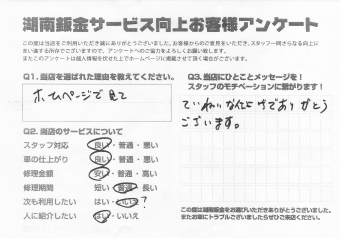 湖南鈑金サービス向上お客様アンケート
この度は当店をご利用いただき誠にありがとうございました。お客様からのご意見をいただき、スタッフ一同さらなる向上に
まい進する所存でございますので、アンケートへのご協力をよろしくお願い致します。
またこのアンケートは個人情報を伏せた上でホームページに掲載させて頂く場合がございます。
Q1. 当店を選ばれた理由を教えてください。
ホームページで見て
Q2. 当店のサービスについて
スタッフ対応 良い・普通・悪い
車の仕上がり 良い・普通・悪い
修理金額 安い・普通・高い
修理期間 短い・普通・長い
次も利用したい はい・いいえ ?
人に紹介したい はい・いいえ
Q3. 当店にひとことメッセージを!
スタッフのモチベーションに繋がります!
ていねいな仕上げでありがとう
ございます。
この度は湖南鈑金をお選びいただきありがとうございました。
またお車にトラブルございましたらぜひご来店ください。